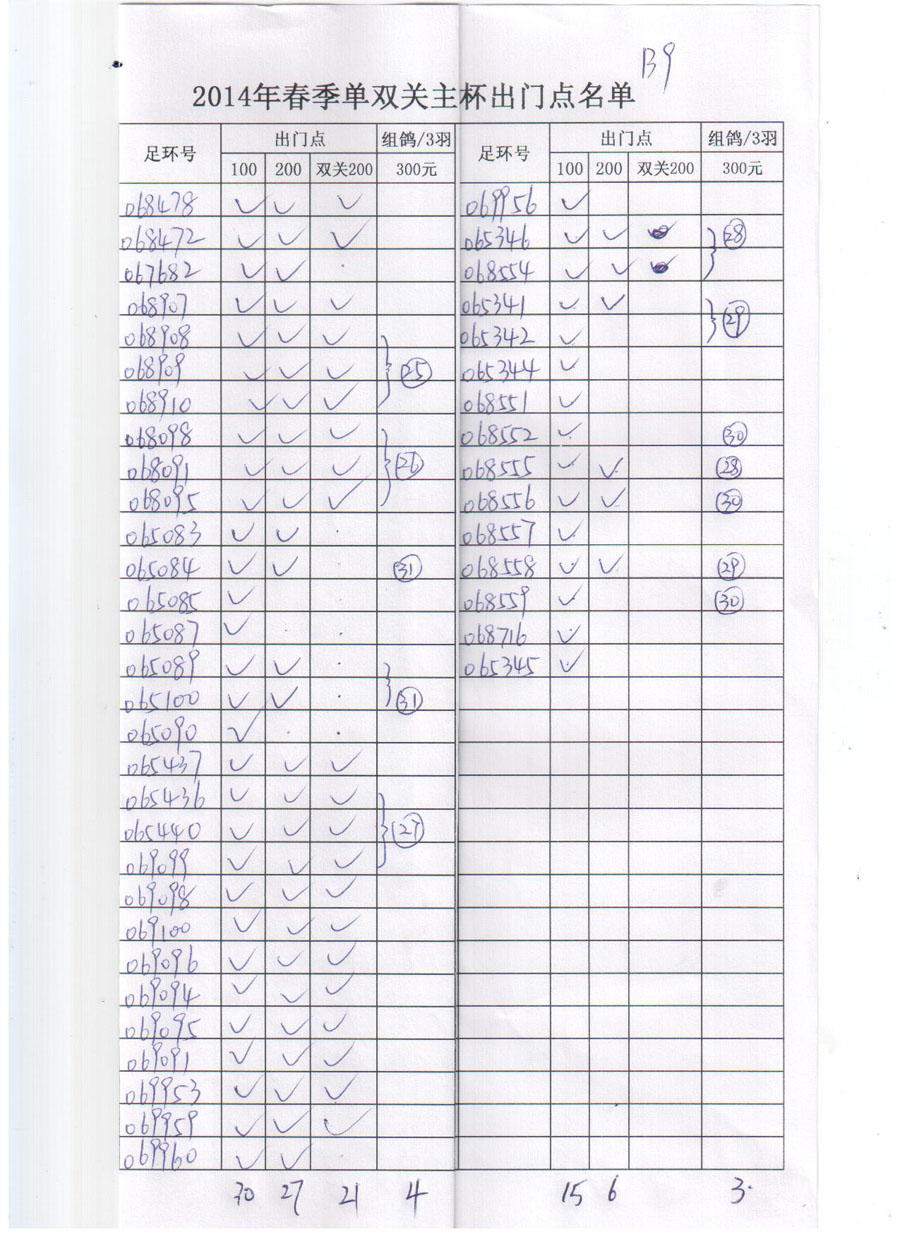 B9
2014年春季单双关主杯出门点名单
足环号 出门点 组鸽/3羽 足环号 出门点 组鸽/3羽
100 200 双关200 300元 100 200 双关200 300元
068478 ✓ ✓ ✓ 069956 ✓
068472 ✓ ✓ ✓ 065346 ✓ ✓ ㉘
067682 ✓ ✓ 068554 ✓ ✓
068907 ✓ ✓ ✓ 065341 ✓ ✓ ㉙
068908 ✓ ✓ ✓ 065342 ✓
068909 ✓ ✓ ✓ ㉕ 065344 ✓
068910 ✓ ✓ ✓ 068551 ✓
068098 ✓ ✓ ✓ 068552 ✓ ㉚
068091 ✓ ✓ ✓ ㉖ 068555 ✓ ✓ ㉘
068095 ✓ ✓ ✓ 068556 ✓ ✓ ㉚
065083 ✓ ✓ 068557 ✓
065084 ✓ ✓ ㉛ 068558 ✓ ✓ ㉙
065085 ✓ 068559 ✓ ㉚
065087 ✓ 068716 ✓
065089 ✓ ✓ 065345 ✓
065100 ✓ ✓ ㉛
065090 ✓
065437 ✓ ✓ ✓
065436 ✓ ✓ ✓
065440 ✓ ✓ ✓ ㉗
069099 ✓ ✓ ✓
069098 ✓ ✓ ✓
069100 ✓ ✓ ✓
069096 ✓ ✓ ✓
069094 ✓ ✓ ✓
069095 ✓ ✓ ✓
069091 ✓ ✓ ✓
069953 ✓ ✓ ✓
069959 ✓ ✓ ✓
069960 ✓ ✓
30 27 21 4 15 6 3